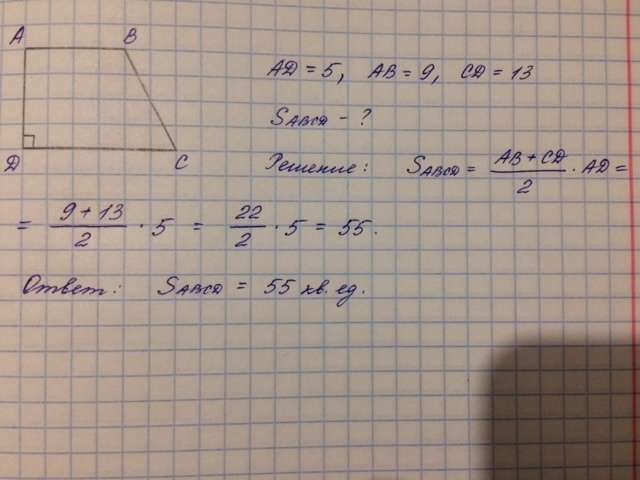 A B
AD = 5, AB = 9, CD = 13
S_ABCD - ?
D C
Решение: S_ABCD = (AB + CD)/2 · AD =
= (9 + 13)/2 · 5 = 22/2 · 5 = 55.
Ответ: S_ABCD = 55 кв. ед.